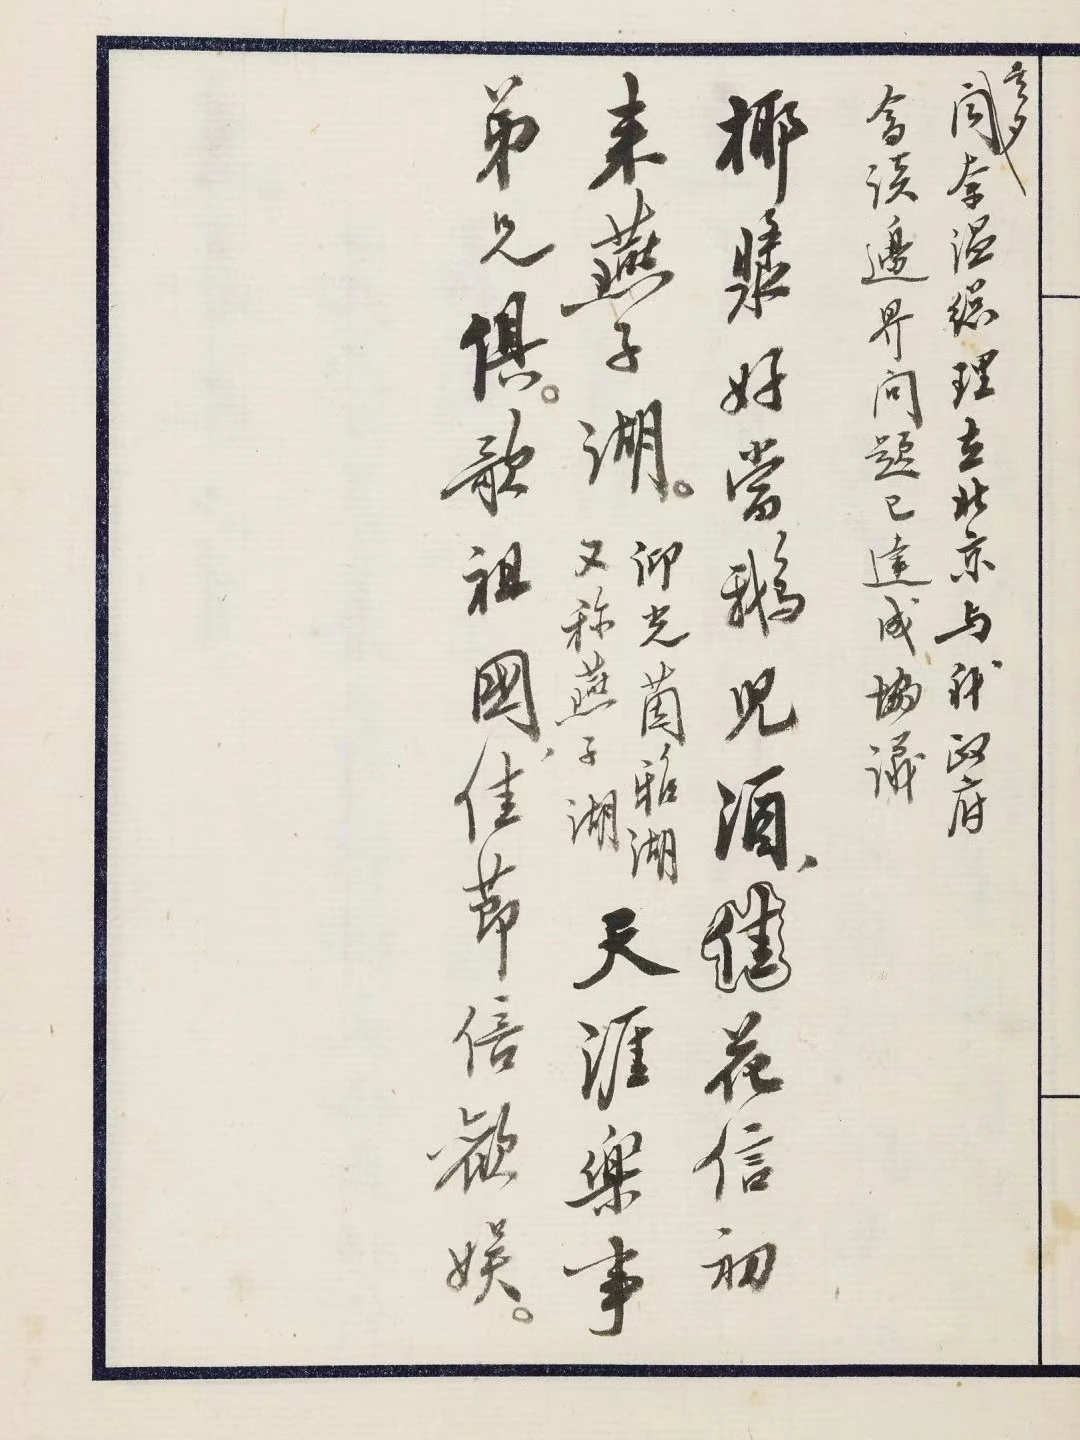 是夕
闻奈温總理在北京与我政府
會談邊界问題已達成協議
椰漿好當鵝兒酒、催花信初
来燕子湖。仰光茵雅湖又称燕子湖天涯樂事
弟兄俱。歌祖國、佳節倍歡娱。